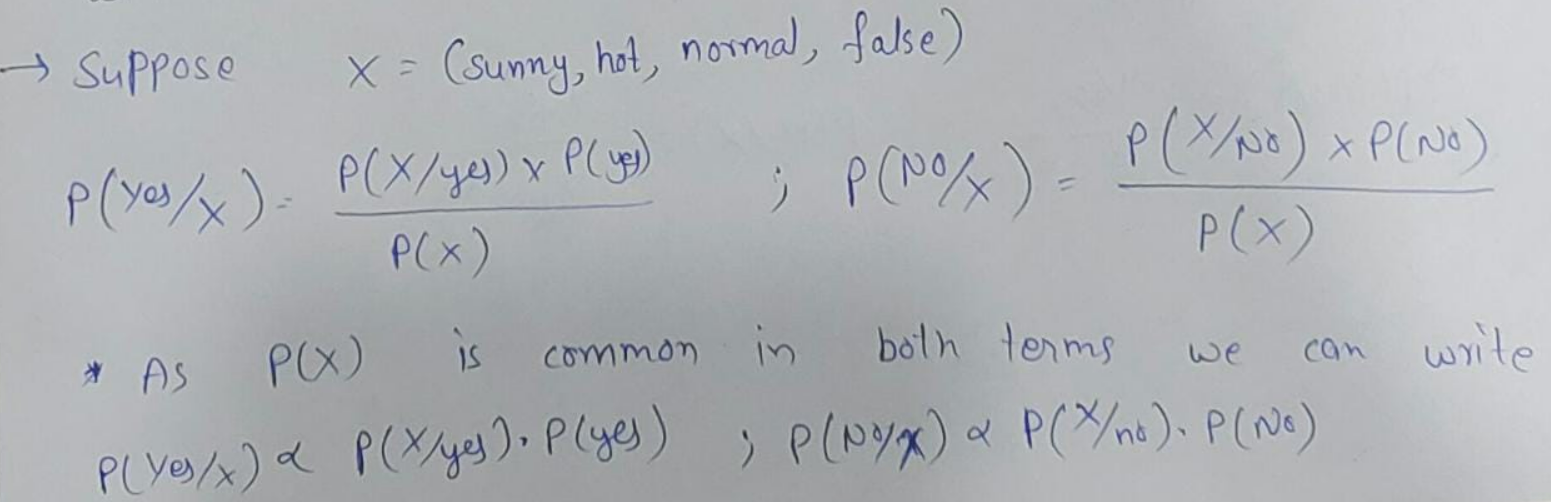 → Suppose X = (sunny, hot, normal, false)
P(Yes/X) = P(X/yes) x P(yes) / P(X) ; P(No/X) = P(X/No) x P(No) / P(X)
* As P(X) is common in both terms we can write
P(Yes/X) α P(X/yes). P(yes) ; P(No/X) α P(X/no). P(No)